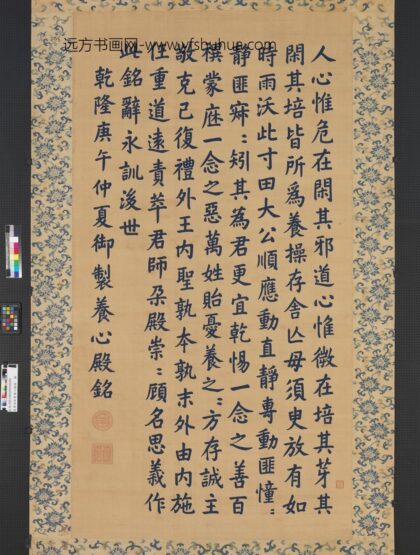 远方书画网-www.yfshuhua.com
人心惟危在閑其邪道心惟微在培其芽其
閑其培皆所爲養操存舍亾毋須臾放有如
時雨沃此寸田大公順應動直靜專動匪憧〻
靜匪寐〻矧其為君更宜乾惕一念之善百
祺蒙庥一念之惡萬姓貽憂養之〻方存誠主
敬克己復禮外王内聖孰本孰末外由内施
任重道遠責萃君師朶殿崇〻顧名思義作
此銘辭永訓後世
乾隆庚午仲夏御製養心殿銘